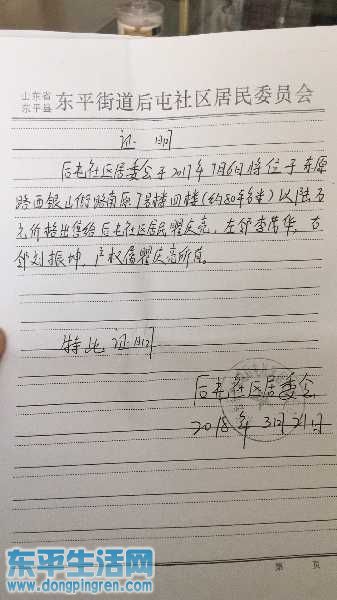 山东省
东平县 东平街道后屯社区居民委员会
证明
后屯社区居委会于2017年7月6日将位于东原
路西银山街路南原7号楼四楼(约80平方米)以陆万
元价格出售给后屯社区居民瞿庆亮，左邻李茂华，右
邻刘振坤，产权属瞿庆亮所有。
特此证明
后屯社区居委会
2018年3月21日
第 页
东平生活网
www.dongpingren.com